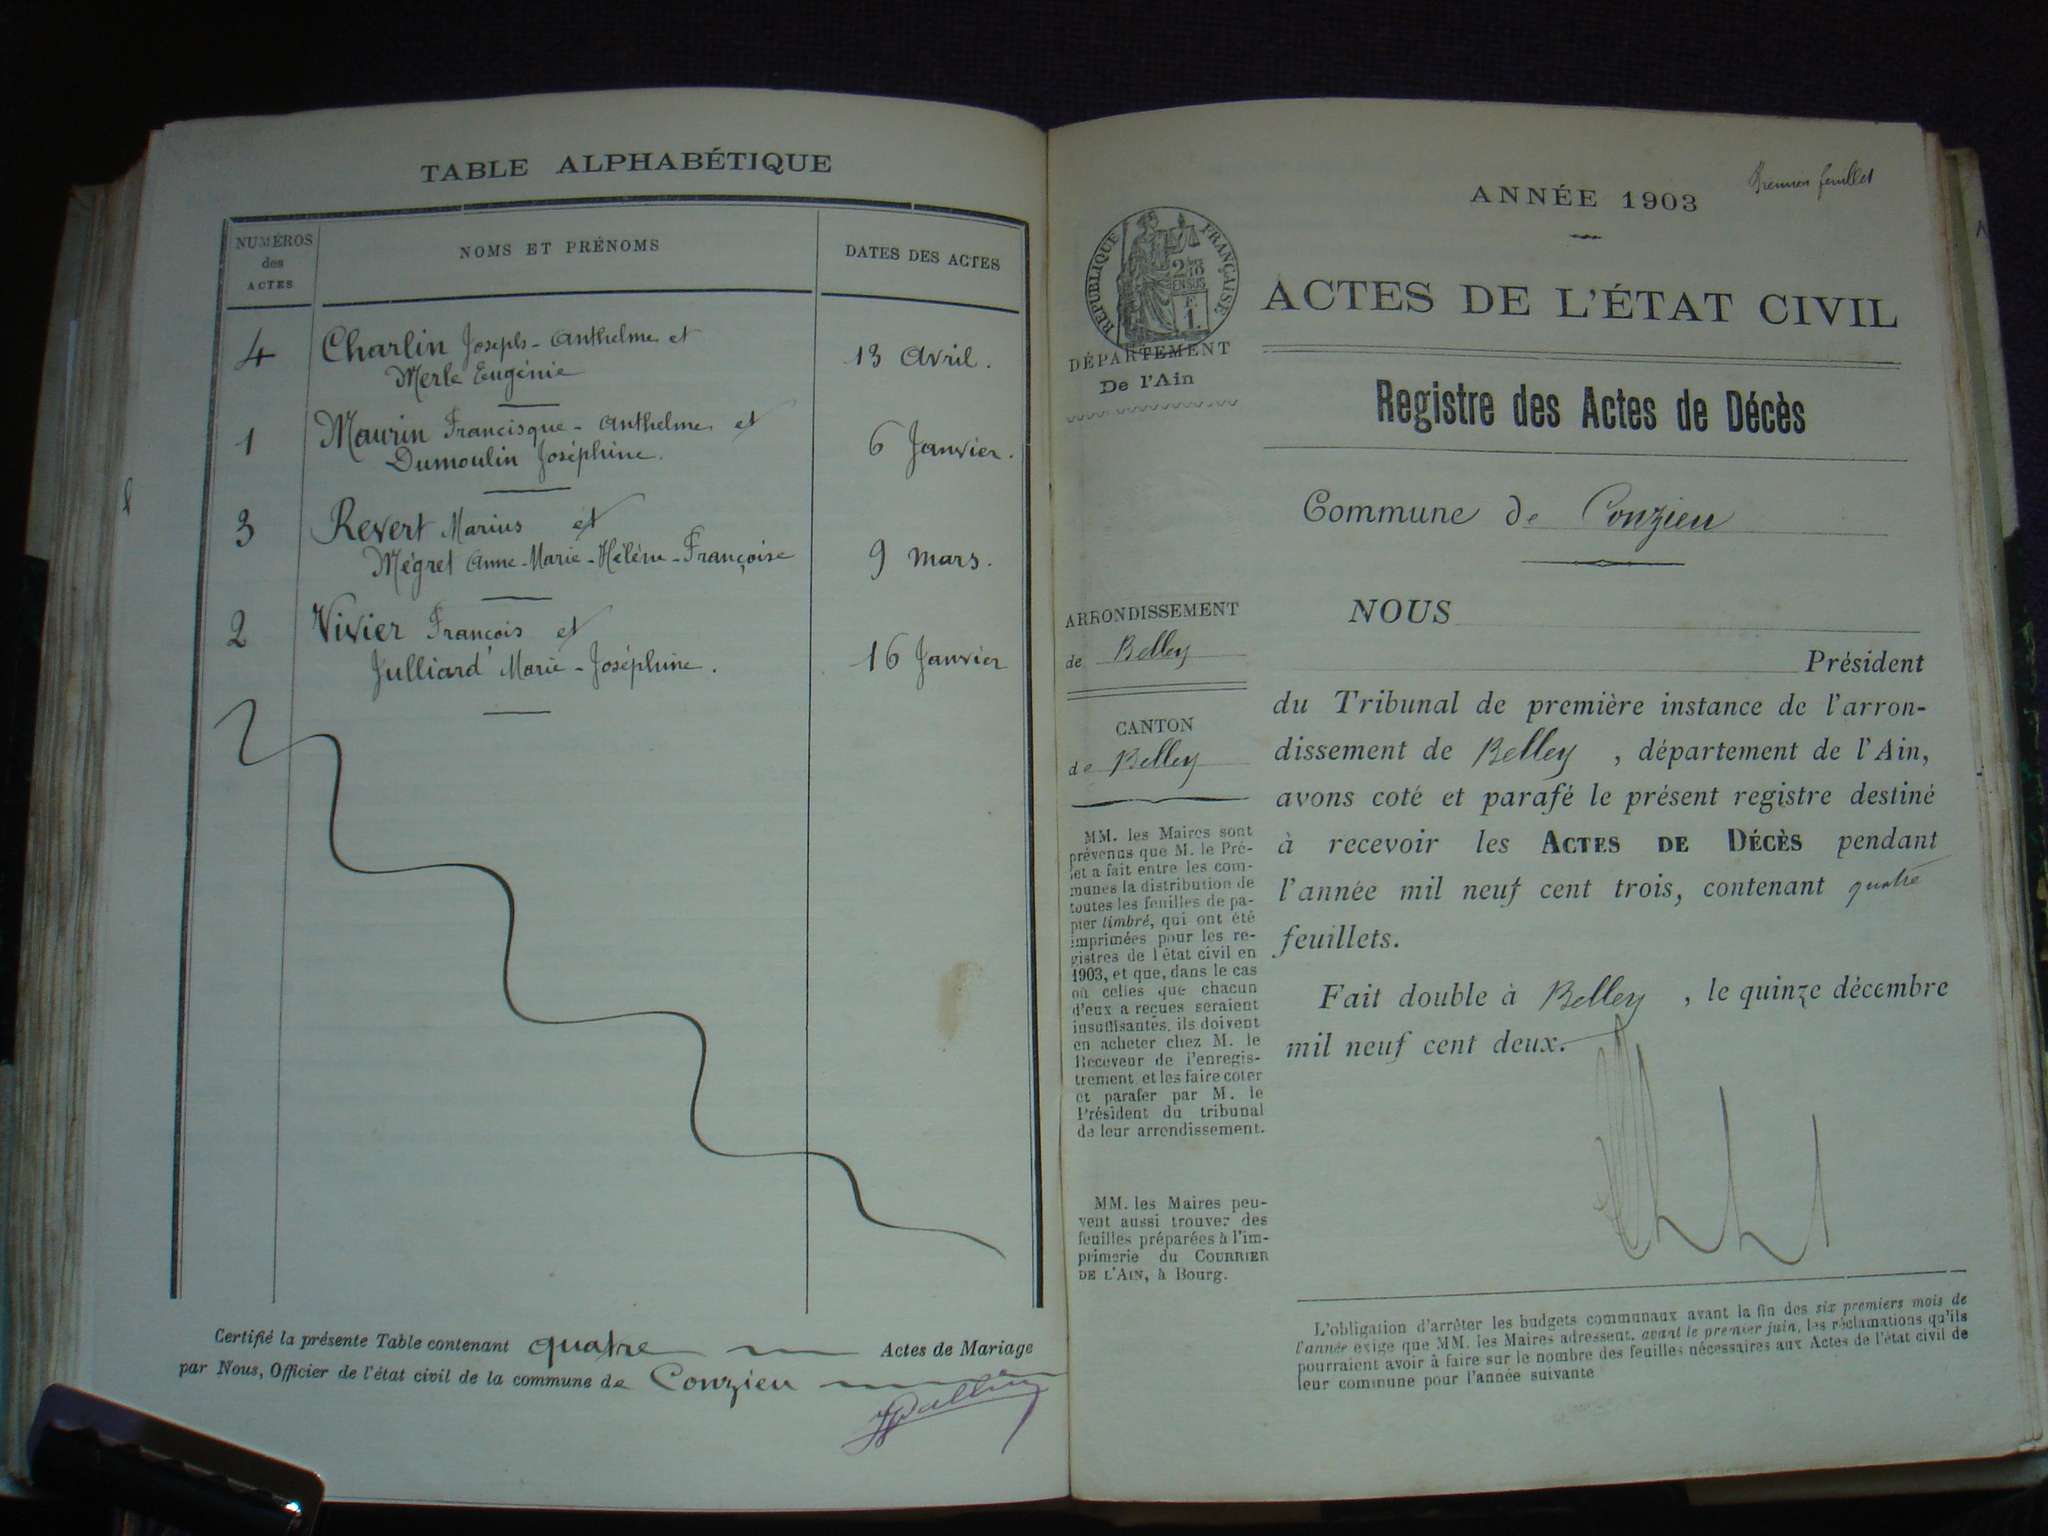 TABLE ALPHABÉTIQUE
NUMÉROS
des
ACTES
NOMS ET PRÉNOMS
DATES DES ACTES
4 Charlin Joseph - Anthelme et
Merle Eugénie
13 Avril.
1 Maurin Francisque - Anthelme et
Dumoulin Joséphine.
6 Janvier.
3 Revert Marius et
Mégret Anne - Marie - Hélène - Françoise
9 Mars.
2 Vivier François et
Julliard Marie - Joséphine.
16 Janvier
Certifié la présente Table contenant quatre Actes de Mariage
par Nous, Officier de l'état civil de la commune de Conzieu
Premier feuillet
ANNÉE 1903
RÉPUBLIQUE FRANÇAISE
ACTES DE L'ÉTAT CIVIL
DÉPARTEMENT
De l'Ain
Registre des Actes de Décès
Commune de Conzieu
ARRONDISSEMENT
de Belley
CANTON
de Belley
MM. les Maires sont
prévenus que M. le Pré-
fet a fait entre les com-
munes la distribution de
toutes les feuilles de pa-
pier timbré, qui ont été
imprimées pour les re-
gistres de l'état civil en
1903, et que, dans le cas
où celles que chacun
d'eux a reçues seraient
insuffisantes, ils doivent
en acheter chez M. le
Receveur de l'enregis-
trement et les faire coter
et parafer par M. le
Président du tribunal
de leur arrondissement.
MM. les Maires peu-
vent aussi trouver des
feuilles préparées à l'im-
primerie du COURRIER
DE L'AIN, à Bourg.
NOUS
Président
du Tribunal de première instance de l'arron-
dissement de Belley, département de l'Ain,
avons coté et parafé le présent registre destiné
à recevoir les ACTES DE DÉCÈS pendant
l'année mil neuf cent trois, contenant quatre
feuillets.
Fait double à Belley, le quinze décembre
mil neuf cent deux.
L'obligation d'arrêter les budgets communaux avant la fin des six premiers mois de
l'année exige que MM. les Maires adressent, avant le premier juin, les réclamations qu'ils
pourraient avoir à faire sur le nombre des feuilles nécessaires aux Actes de l'état civil de
leur commune pour l'année suivante